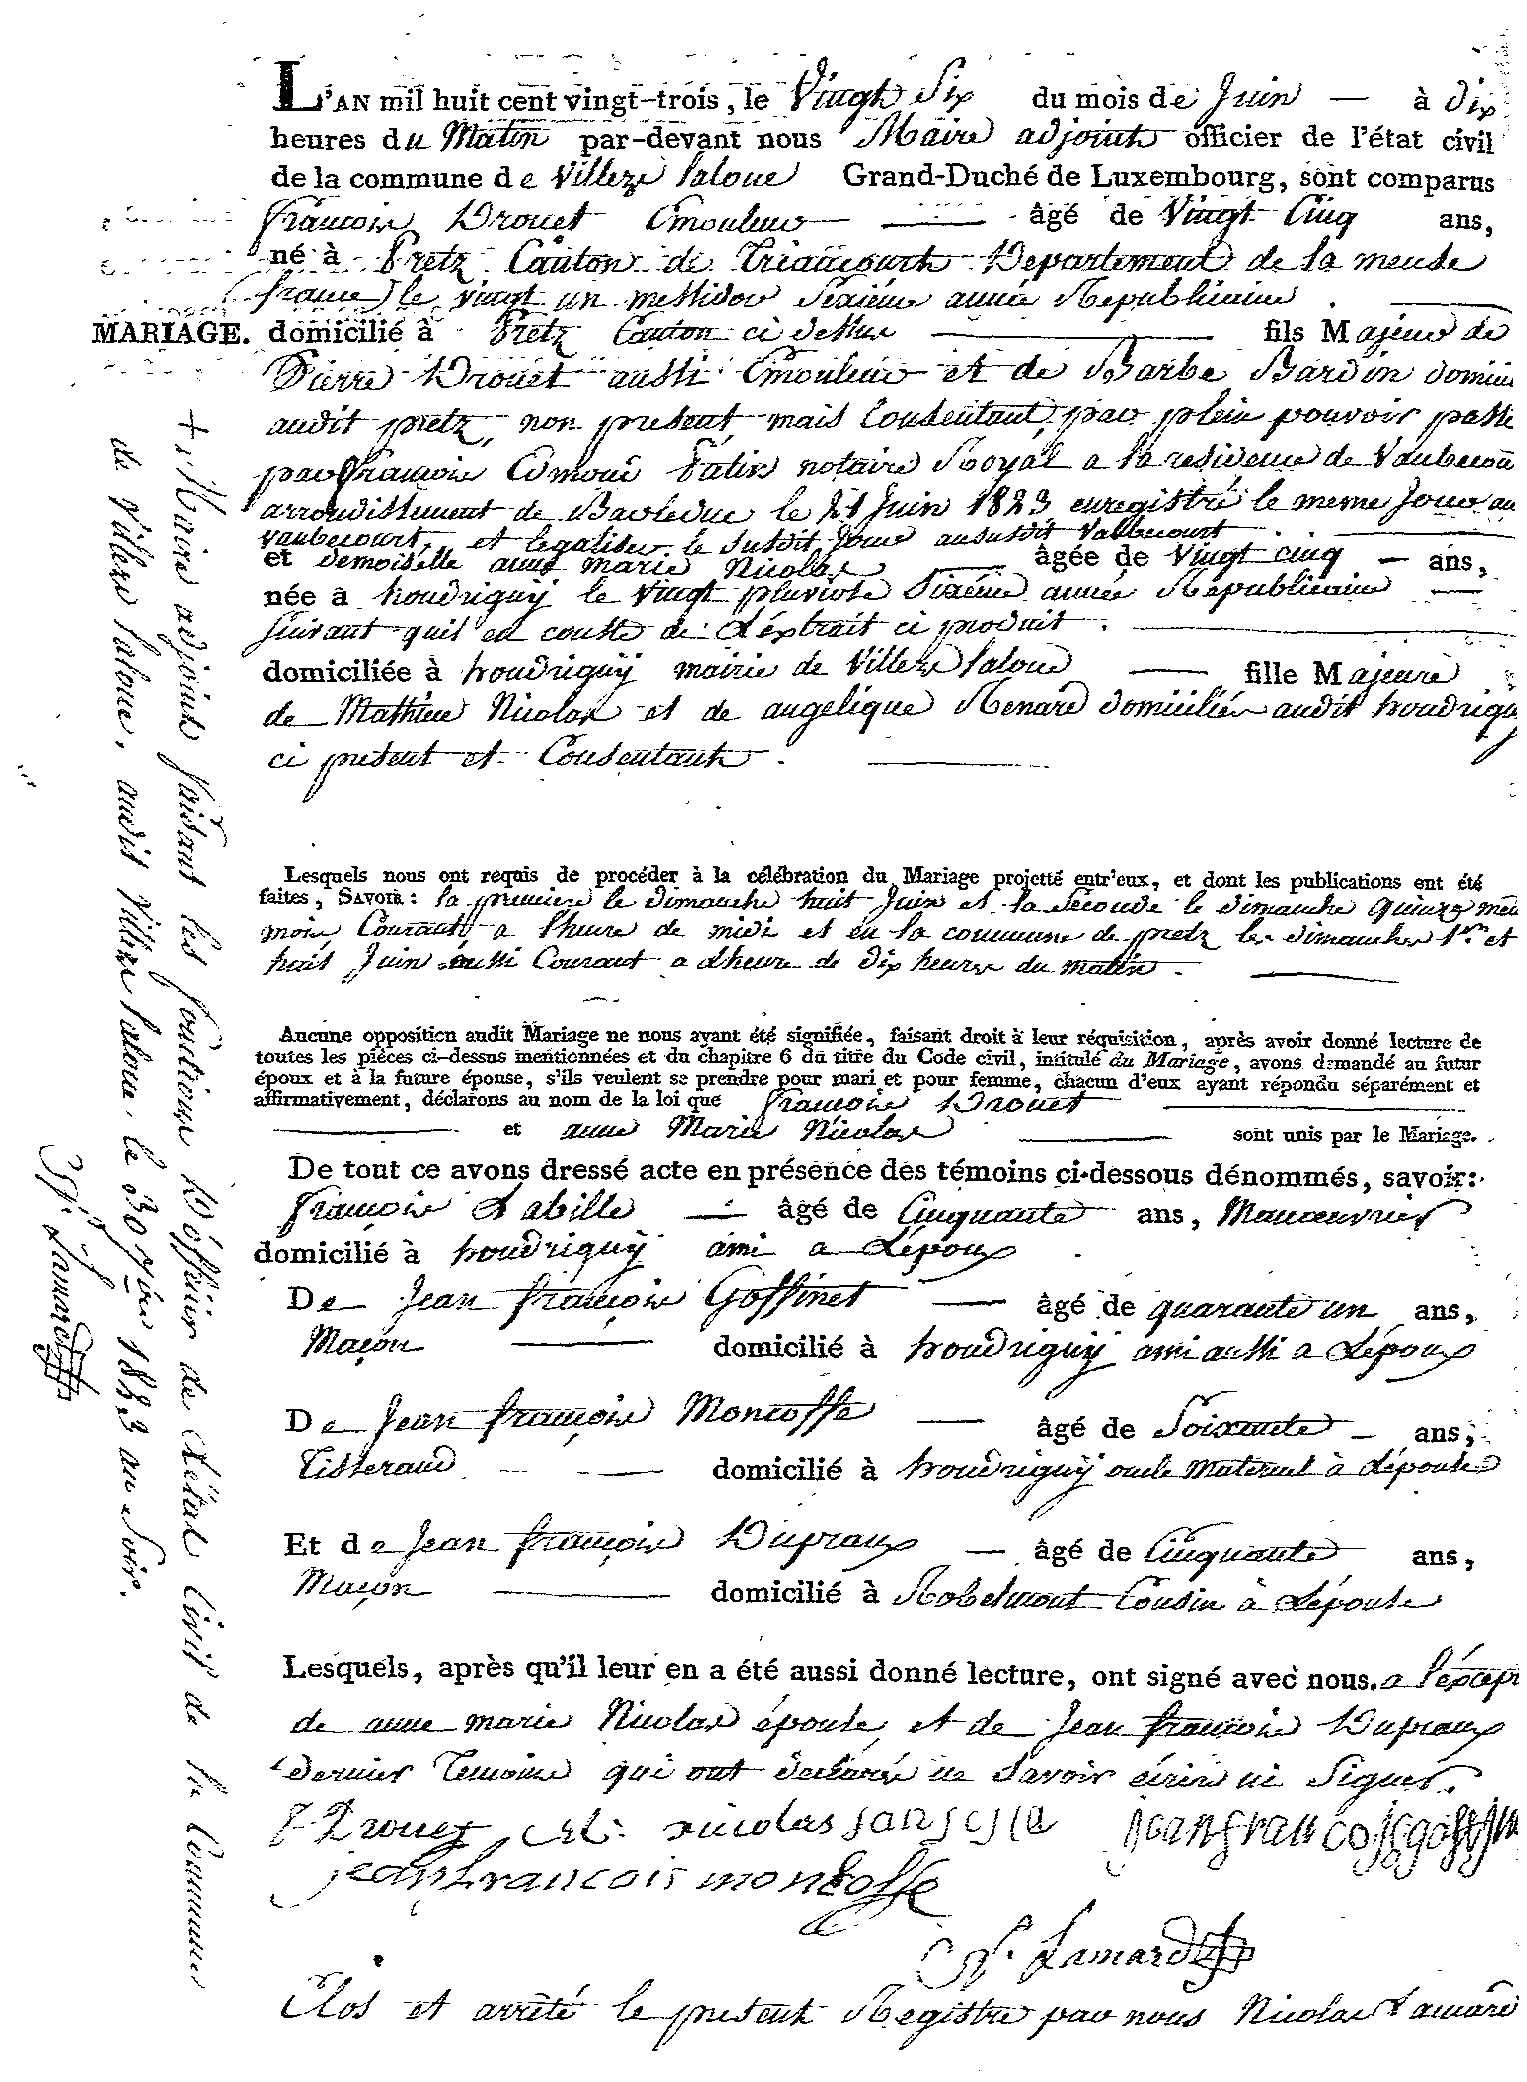 L'AN mil huit cent vingt-trois, le Vingt Six du mois de Juin — à dix
heures du Matin par-devant nous Maire adjoint officier de l'état civil
de la commune de Villers laloue Grand-Duché de Luxembourg, sont comparus
françois Drouet Emouleur — âgé de Vingt Cinq ans,
né à Pretz Canton de Triaucourt Departement de la meuse
(france) le vingt un messidor Sixiéme année Republicaine.
MARIAGE. domicilié à Pretz Canton ci dessus — fils Majeur de
Pierre Drouet aussi Emouleur et de Barbe Bardin domici
audit pretz, non present, mais Consentant, par plein pouvoir passé
par françois Edmond notaire Royal a la residence de Vaubecou
arrondissement de Barleduc le 21 Juin 1823 enregistré le meme Jour au
vaubecourt, et legaliser le susdit Jour au susdit Vaubecourt
et demoiselle anne marie Nicolas — âgée de Vingt cinq — ans,
née à houdrigny le Vingt pluviose Sixiéme année Republicaine —
suivant quil en conste de L'éxtrait ci produit.
domiciliée à houdrigny mairie de Villers laloue — fille Majeure
de Mathieu Nicolas et de angelique Renard domiciliés audit houdrigny
ci present et Consentant.
Lesquels nous ont requis de procéder à la célébration du Mariage projetté entr'eux, et dont les publications ont été
faites, SAVOIR : la premiere le dimanche huit Juin et la Seconde le dimanche Quinze meme
mois Courant a l'heure de midi et en la commune de pretz les dimanches 1er et
huit Juin aussi Courant a Lheure de dix heures du matin.
Aucune opposition audit Mariage ne nous ayant été signifiée, faisant droit à leur réquisition, après avoir donné lecture de
toutes les pièces ci-dessus mentionnées et du chapitre 6 du titre du Code civil, intitulé du Mariage, avons demandé au futur
époux et à la future épouse, s'ils veulent se prendre pour mari et pour femme, chacun d'eux ayant répondu séparément et
affirmativement, déclarons au nom de la loi que françois Drouet
et anne Marie Nicolas — sont unis par le Mariage.
De tout ce avons dressé acte en présence des témoins ci-dessous dénommés, savoir:
françois Labille — âgé de Cinquante ans, Manoeuvrier
domicilié à houdrigny ami a Lépoux
De Jean françois Goffinet — âgé de quarante un ans,
Maçon — domicilié à houdrigny ami aussi a Lépoux
De Jean françois Moncosse — âgé de Soixante — ans,
Tisserand — domicilié à houdrigny oncle maternel à Lépouse
Et de Jean françois Dupraux — âgé de Cinquante ans,
Maçon — domicilié à Robelmont Cousin à Lépouse
Lesquels, après qu'il leur en a été aussi donné lecture, ont signé avec nous. a l'éxcept
de anne marie Nicolas épouse, et de Jean françois Dupraux
dernier Temoins qui ont déclarés ne Savoir écrire ni Signer.
F Drouet nicolas jeanfrancoisgoffin
jean francois moncosse
N. Lamard
Clos et arrêté le present Registre par nous Nicolas Lamard
+ Maire adjoint faisant les fonctions D'officier de L'état Civil de la Commune
de Villers laloue, audit Villers laloue, le 30 1823 au Soir.
N. Lamard